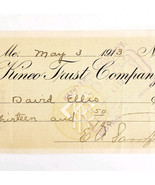 Mo. May 3 1913 N
Kinco Trust Company
David Ellis
hirteen and 50